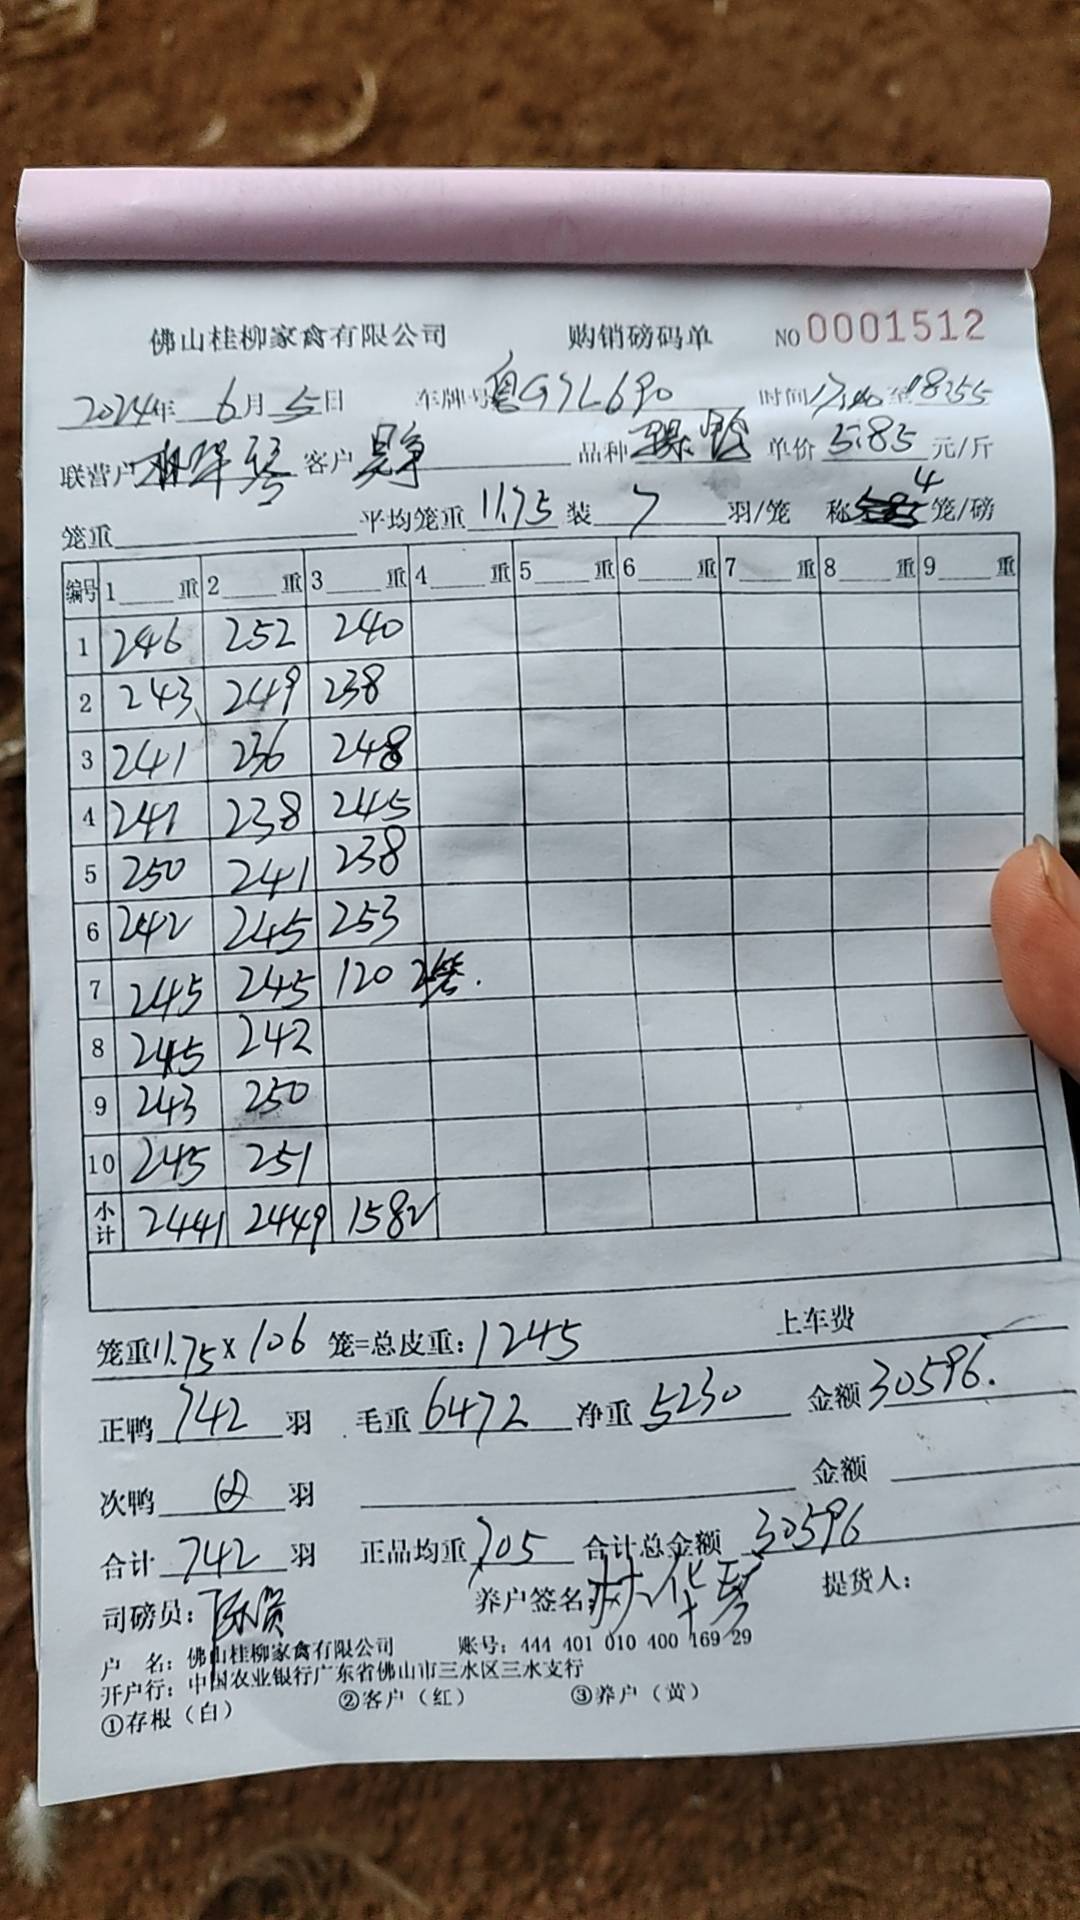 佛山桂柳家禽有限公司 购销磅码单 NO 0001512
2024年 6月 5日 车牌号粤G7L690 时间17:00至18:55
联营户林华琴 客户 品种 单价 5.85 元/斤
笼重 平均笼重 11.75 装 7 羽/笼 称 4 笼/磅
编号 1 重 2 重 3 重 4 重 5 重 6 重 7 重 8 重 9 重
1 246 252 240
2 243 249 238
3 241 236 248
4 241 238 245
5 250 241 238
6 242 245 253
7 245 245 120 2笼.
8 245 242
9 243 250
10 245 251
小计 2441 2449 1582
笼重11.75×106 笼=总皮重:1245 上车费
正鸭 742 羽 毛重 6472 净重 5230 金额30596.
次鸭 羽 金额
合计 742 羽 正品均重 7.05 合计总金额 30596
司磅员: 养户签名:林华琴 提货人:
户 名: 佛山桂柳家禽有限公司 账号: 444 401 010 400 169 29
开户行: 中国农业银行广东省佛山市三水区三水支行
①存根（白） ②客户（红） ③养户（黄）